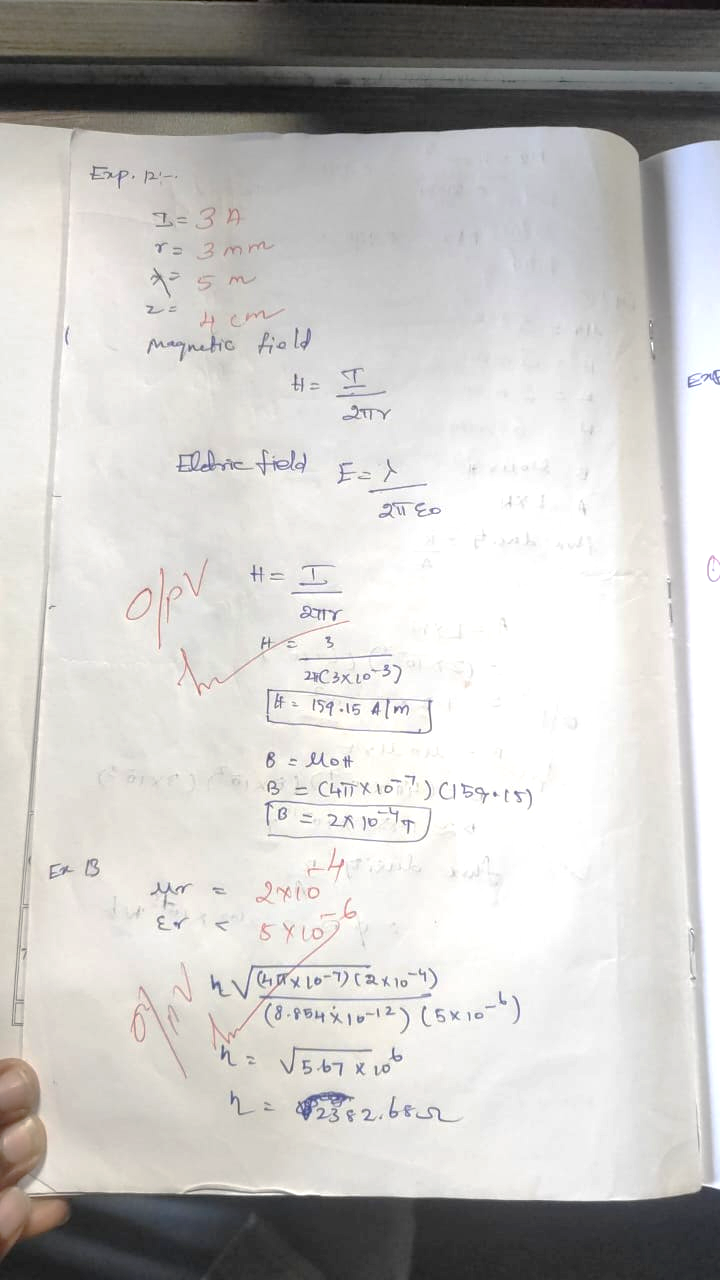 Exp. 12:-
I = 3 A
r = 3 mm
λ = 5 m
z = 4 cm
Magnetic field
H = I / 2πr
Eldric field E = λ / 2π ε0
O/P V
H = I / 2πr
H = 3 / 2π(3×10-3)
H = 159.15 A/m
B = μ0H
B = (4π×10-7) (159.15)
B = 2×10-4 T
Ex 13
μr = 2×10-4
εr = 5×10-6
O/P V
η √(4π×10-7)(2×10-4) / (8.854×10-12) (5×10-6)
η = √5.67 × 10 6
η = 2382.68 Ω